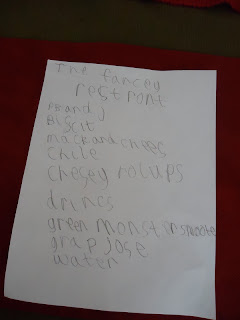 The fancey
restront
PB and j
BiScit
mack ard chees
Chile
chesey rolups
drincs
green monstor smoote
grap jose
water